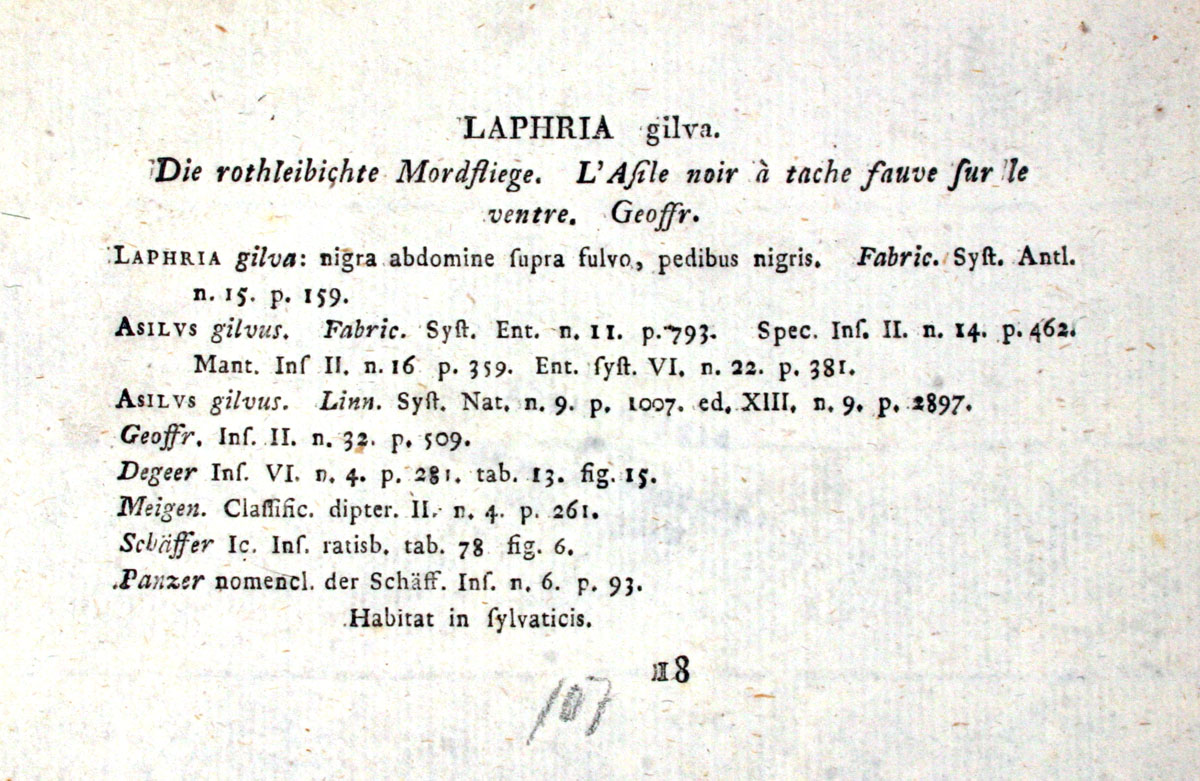 LAPHRIA gilva.
Die rothleibichte Mordfliege. L'Aſile noir à tache fauve ſur le
ventre. Geoffr.
LAPHRIA gilva: nigra abdomine ſupra fulvo, pedibus nigris. Fabric. Syſt. Antl.
n. 15. p. 159.
ASILVS gilvus. Fabric. Syſt. Ent. n. 11. p. 793. Spec. Inſ. II. n. 14. p. 462.
Mant. Inſ II. n. 16 p. 359. Ent. ſyſt. VI. n. 22. p. 381.
ASILVS gilvus. Linn. Syſt. Nat. n. 9. p. 1007. ed. XIII. n. 9. p. 2897.
Geoffr. Inſ. II. n. 32. p. 509.
Degeer Inſ. VI. n. 4. p. 281. tab. 13. fig. 15.
Meigen. Claſſific. dipter. II. n. 4. p. 261.
Schäffer Ic. Inſ. ratisb. tab. 78 fig. 6.
Panzer nomencl. der Schäff. Inſ. n. 6. p. 93.
Habitat in ſylvaticis.
18
107